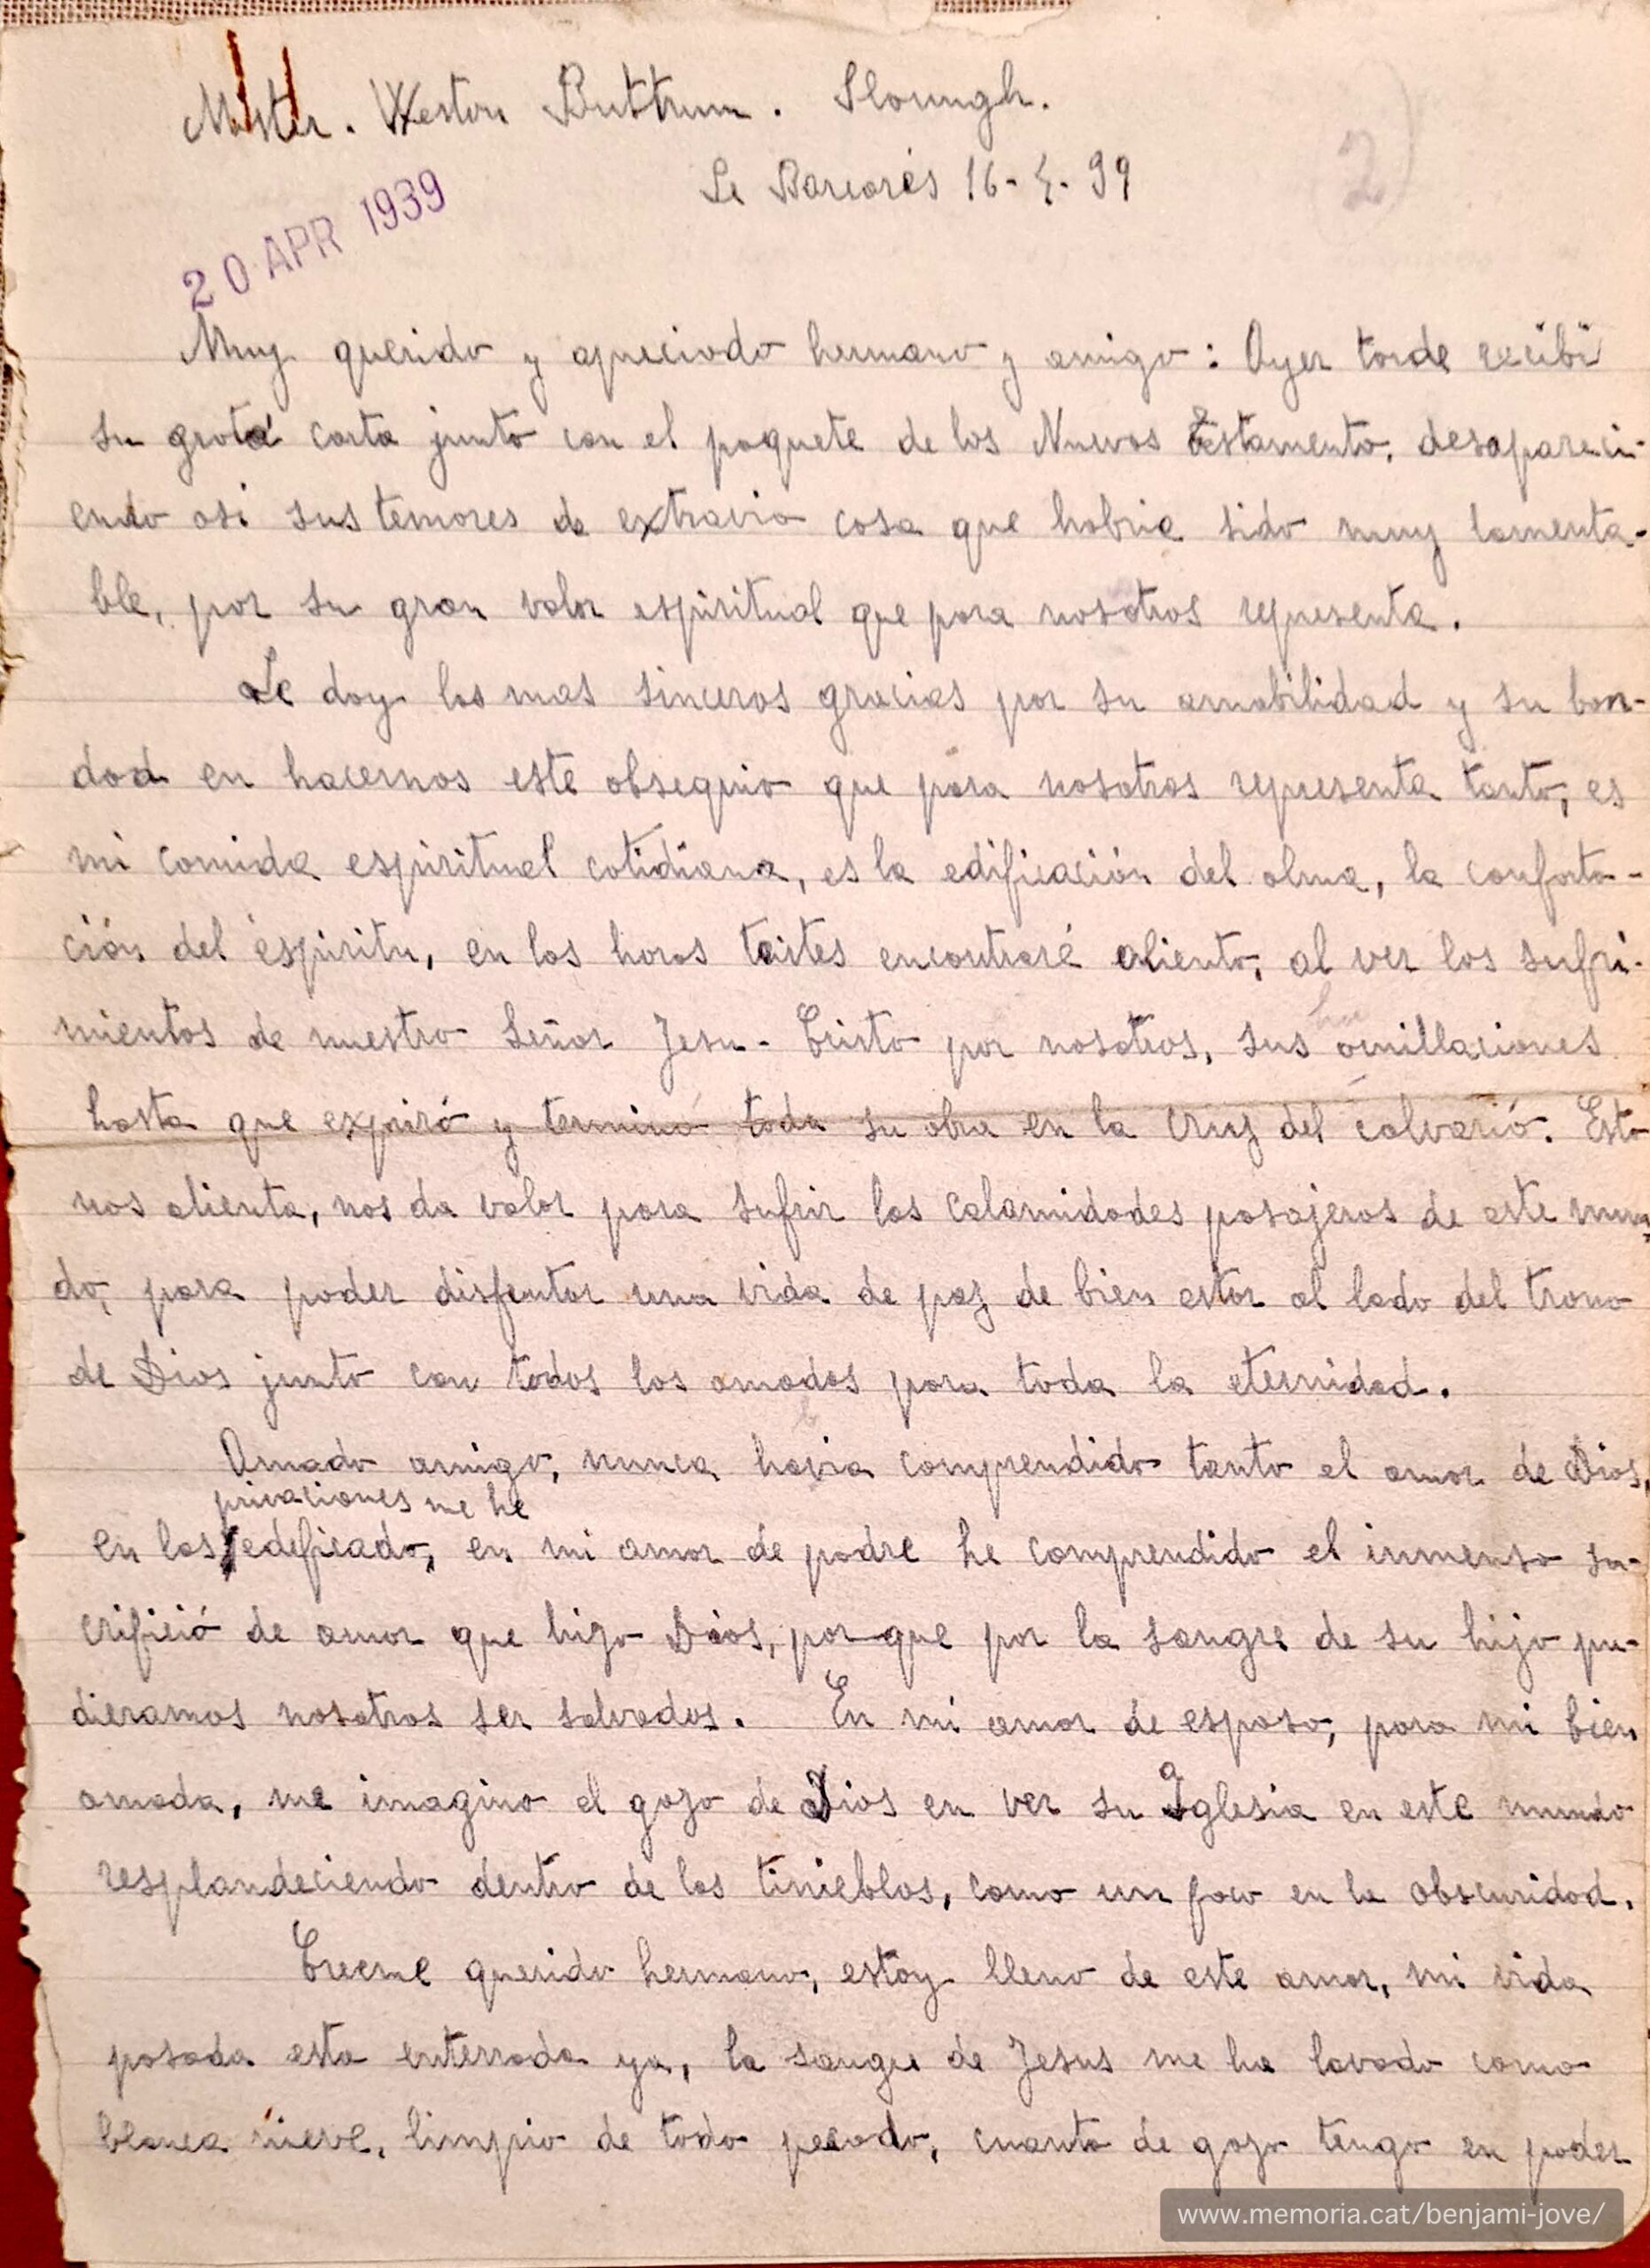 Mister. Weston Buttrum. Sloungh.
Le Barcarés 16-4-39
2)
20 APR 1939
Muy querido y apreciado hermano y amigo: Ayer tarde recibi
su grata carta junto con el paquete de los Nuevos Testamento, desapareci-
endo asi sus temores de extravio cosa que habria sido muy lamenta-
ble, por su gran valor espiritual que para nosotros representa.
Le doy las mas sinceras gracias por su amabilidad y su bon-
dad en hacernos este obsequio que para nosotros representa tanto, es
mi comida espiritual cotidiana, es la edificación del alma, la conforta-
ción del espiritu, en las horas tristes encontraré aliento, al ver los sufri-
mientos de nuestro Señor Jesu-Cristo por nosotros, sus humillaciones
hasta que expiró y terminó toda su obra en la cruz del calvarió. Esto
nos alienta, nos da valor para sufrir las calamidades pasajeras de este mun-
do, para poder disfrutar una vida de paz de bien estar al lado del trono
de Dios junto con todos los amados para toda la eternidad.
Amado amigo, nunca habia comprendido tanto el amor de Dios,
privaciones me he
en las edeficado, en mi amor de padre he comprendido el inmenso sa-
crifició de amor que hizo Dios, por que por la sangre de su hijo pu-
dieramos nosotros ser salvados. En mi amor de esposo, para mi bien
amada, me imagino el gozo de Dios en ver su Iglesia en este mundo
resplandeciendo dentro de las tinieblas, como un foco en la obscuridad.
Creeme querido hermano, estoy lleno de este amor, mi vida
pasada esta enterrada ya, la sangre de Jesus me ha lavado como
blanca nieve, limpio de todo pecado, cuanto de gozo tengo en poder
www.memoria.cat/benjami-jove/